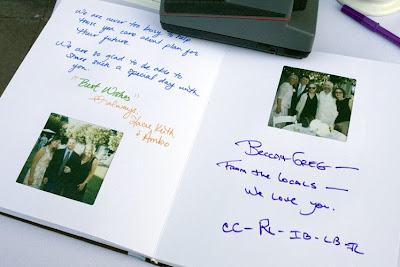 We are never too busy to help
those you care about plan for
their future.
We are so glad to be able to
share such a special day with
you.
"Best Wishes"
always,
Keith
&
Becca + Greg —
From the locals —
We love you.
CC - RL - IB - LB - FL